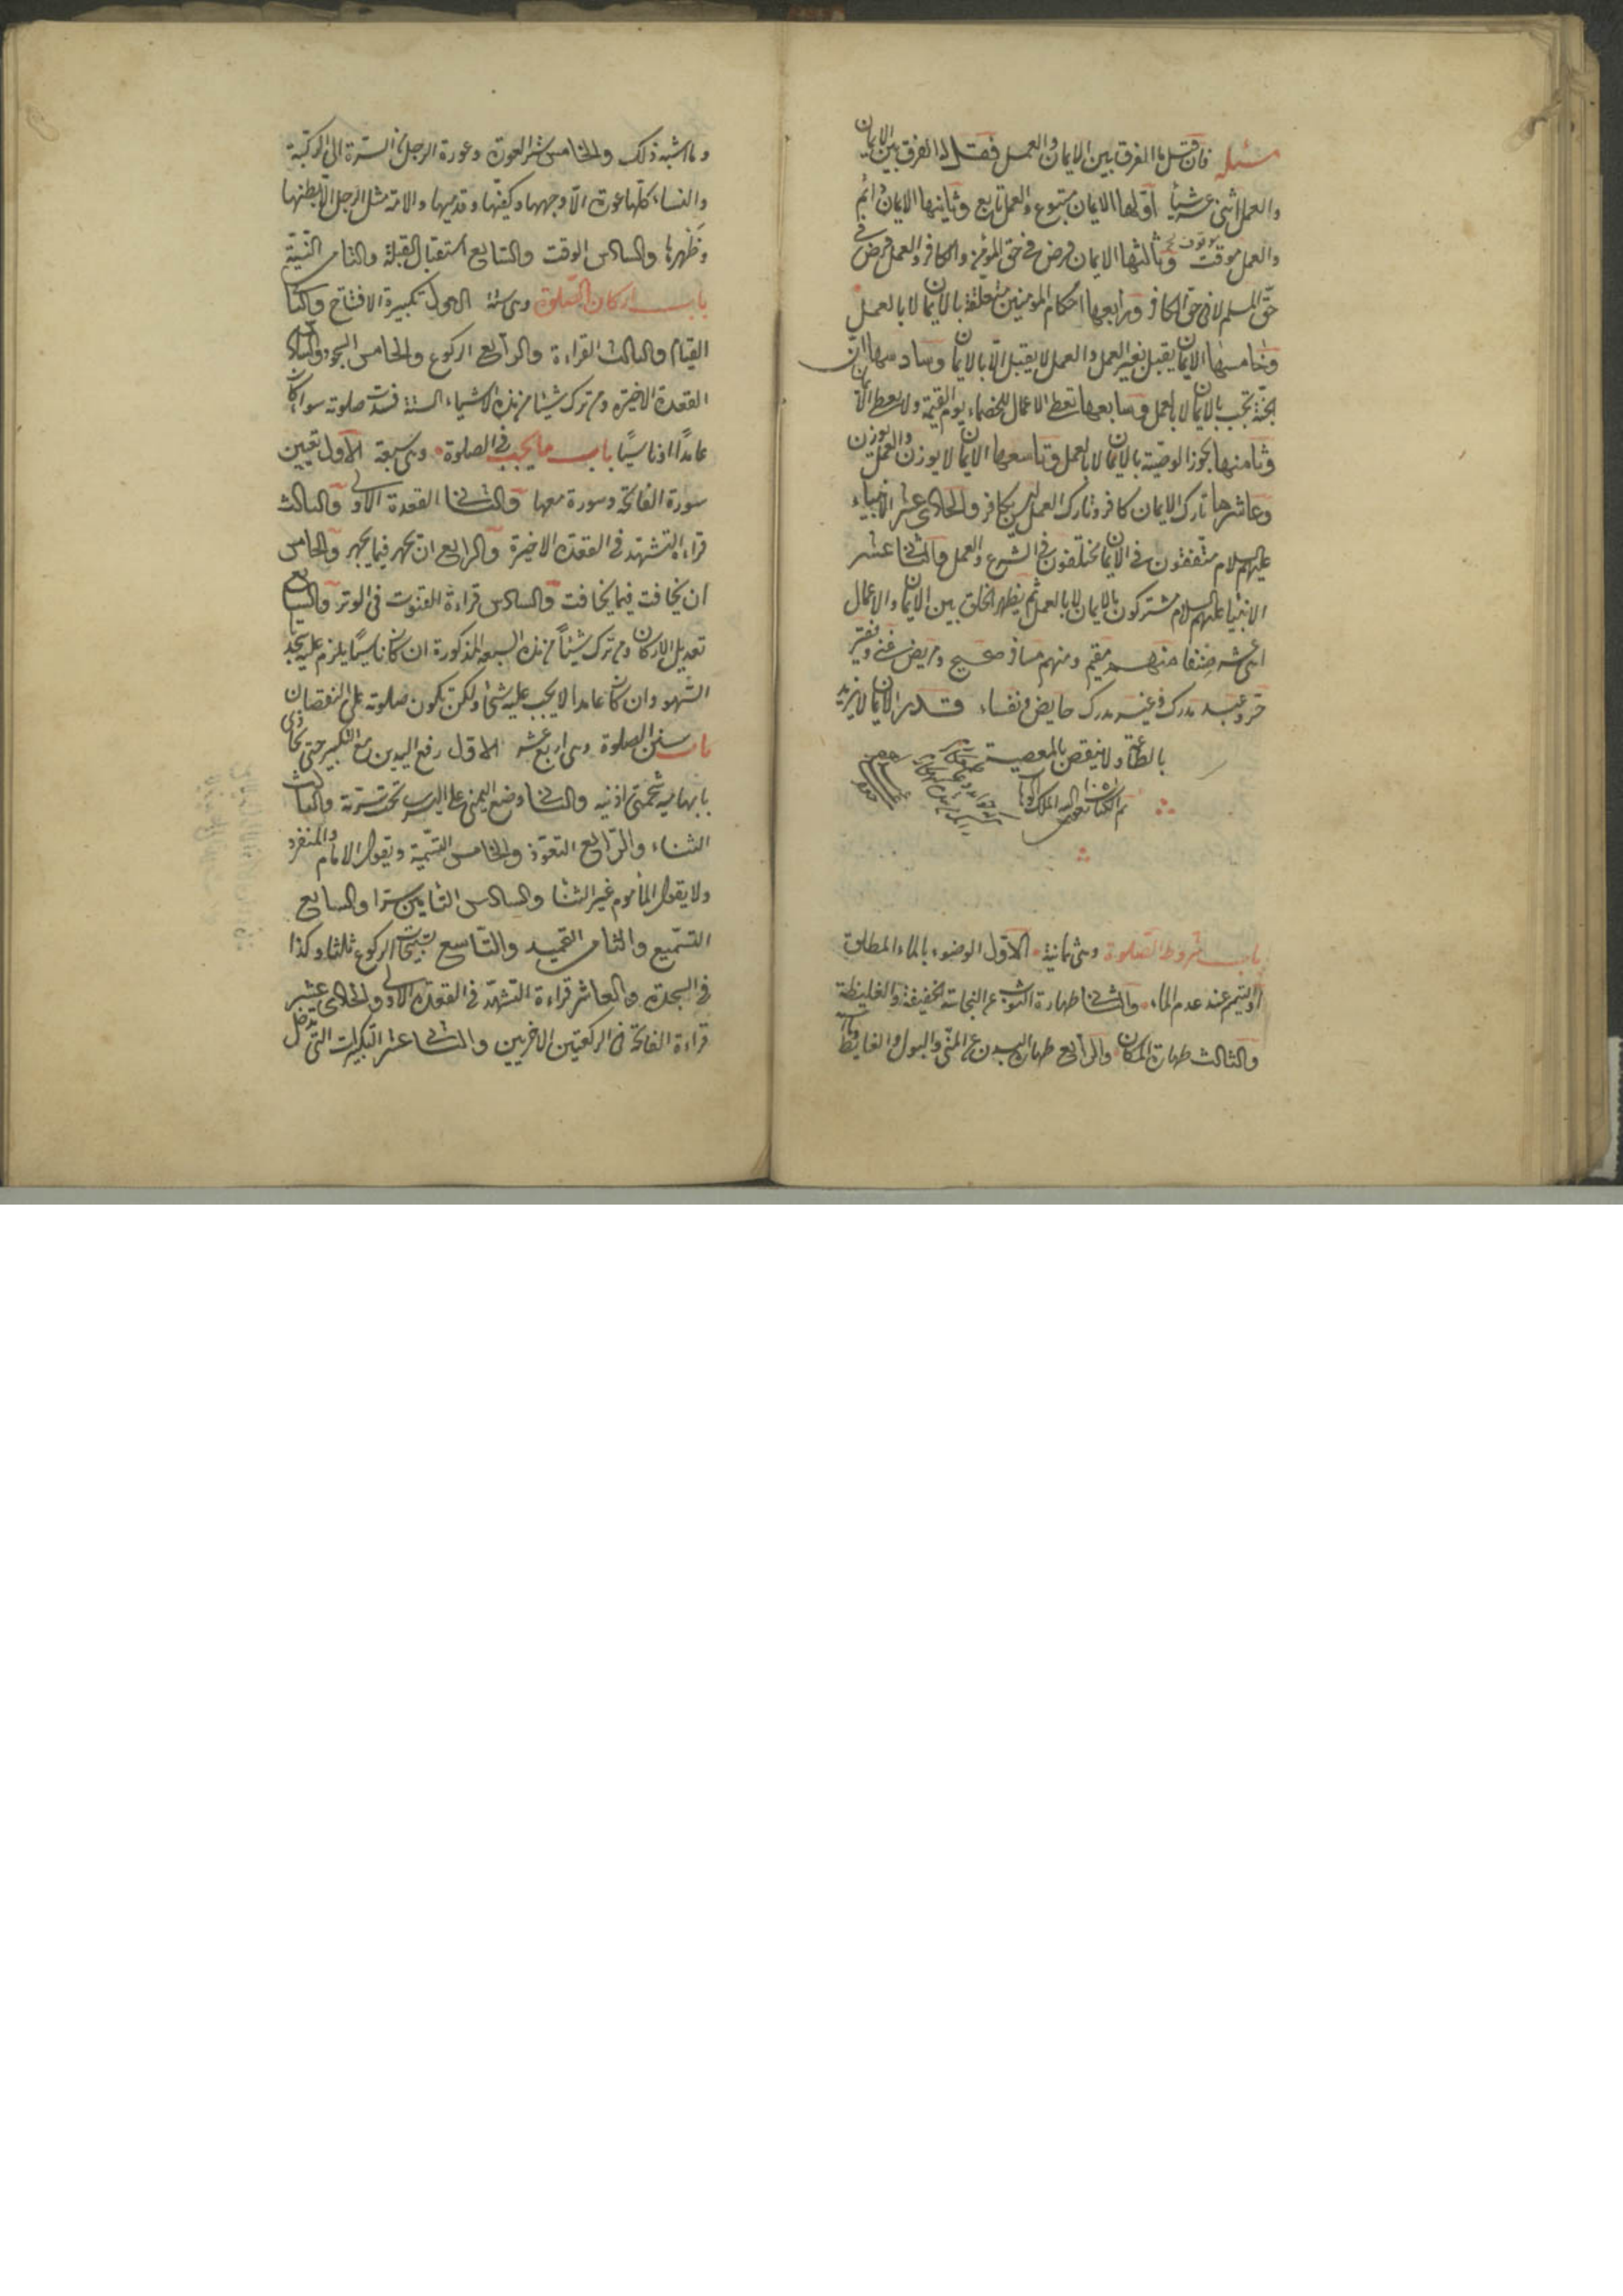 مسئله فان قيل ما الفرق بين الايمان والعمل فقل له الفرق بين الايمان
والعمل اثنى عشر شيأ اولها الايمان متبوع والعمل تابع وثانيها الايمان دائم
والعمل موقت وثالثها الايمان فرض فى حق المؤمن والكافر والعمل فرض فى
حق المسلم لا فى حق الكافر ورابعها احكام المؤمنين متعلقة بالايمان لا بالعمل
وخامسها الايمان يقبل بغير العمل والعمل لا يقبل الا بالايمان وسادسها ان
الجنة تجب بالايمان لا بالعمل وسابعها تعطى الاعمال للخصماء يوم القيمة ولا يعطى الايمان
وثامنها يجوز الوصية بالايمان لا بالعمل وتاسعها الايمان لا يوزن والعمل يوزن
وعاشرها تارك الايمان كافر وتارك العمل ليس بكافر والحادى عشر الانبياء
عليهم السلام متفقون فى الايمان مختلفون فى الشرع والعمل والثانى عشر
الانبياء عليهم السلام مشتركون بالايمان لا بالعمل ثم يظهر الخلق بين الايمان والاعمال
اثنى عشر صنفا منهم مقيم ومنهم مسافر صحيح ومريض غنى وفقير
حر وعبد مدرك وغير مدرك حايض ونفساء قدر الايمان لا يزيد
بالطاعة ولا ينقص بالمعصية
تم الكتاب بعون الله الملك الوهاب
باب شروط الصلوة وهى ثمانية الاول الوضوء بالماء المطلق
او التيمم عند عدم الماء والثانى طهارة الثوب عن النجاسة الخفيفة والغليظة
والثالث طهارة المكان والرابع طهارة البدن عن المنى والبول والغايط
وما اشبه ذلك والخامس ستر العورة وعورة الرجل من السترة الى الركبة
والنساء كلها عورة الا وجهها وكفيها وقدميها والامة مثل الرجل الا بطنها
وظهرها والسادس الوقت والسابع استقبال القبلة والثامن النية
باب اركان الصلوة وهى ستة الاول تكبيرة الافتاح والثانى
القيام والثالث القراءة والرابع الركوع والخامس السجود والسادس
القعدة الاخيرة ومن ترك شيئا من هذه الاشياء الستة فسدت صلوته سواء كان
عامدًا او ناسيًا باب ما يجب فى الصلوة وهى سبعة الاول تعيين
سورة الفاتحة وسورة معها والثانى القعدة الاولى والثالث
قراءة التشهد فى القعدة الاخيرة والرابع ان يجهر فيما يجهر والخامس
ان يخافت فيما يخافت والسادس قراءة القنوت فى الوتر والسابع
تعديل الاركان ومن ترك شيئًا من هذه السبعة المذكورة ان كان ناسيًا يلزم عليه سجدة
السهو وان كان عامدا لا يجب عليه شئ ولكن تكون صلوته على النقصان
باب سنن الصلوة وهى اربع عشر الاول رفع اليدين مع التكبير حتى يحاذى
بابهاميه شحمتى اذنيه والثانى وضع اليمنى على اليسرى تحت سرته والثالث
الثناء والرابع التعوذ والخامس التسمية ويقول الامام والمنفرد
ولا يقول المأموم غير الثنا والسادس التامين سرا والسابع
التسميع والثامن التحميد والتاسع تسبيحات الركوع ثلثا وكذا
فى السجدة والعاشر قراءة التشهد فى القعدة الاولى والحادى عشر
قراءة الفاتحة فى الركعتين الاخريين والثانى عشر التكبيرات التى تدخل